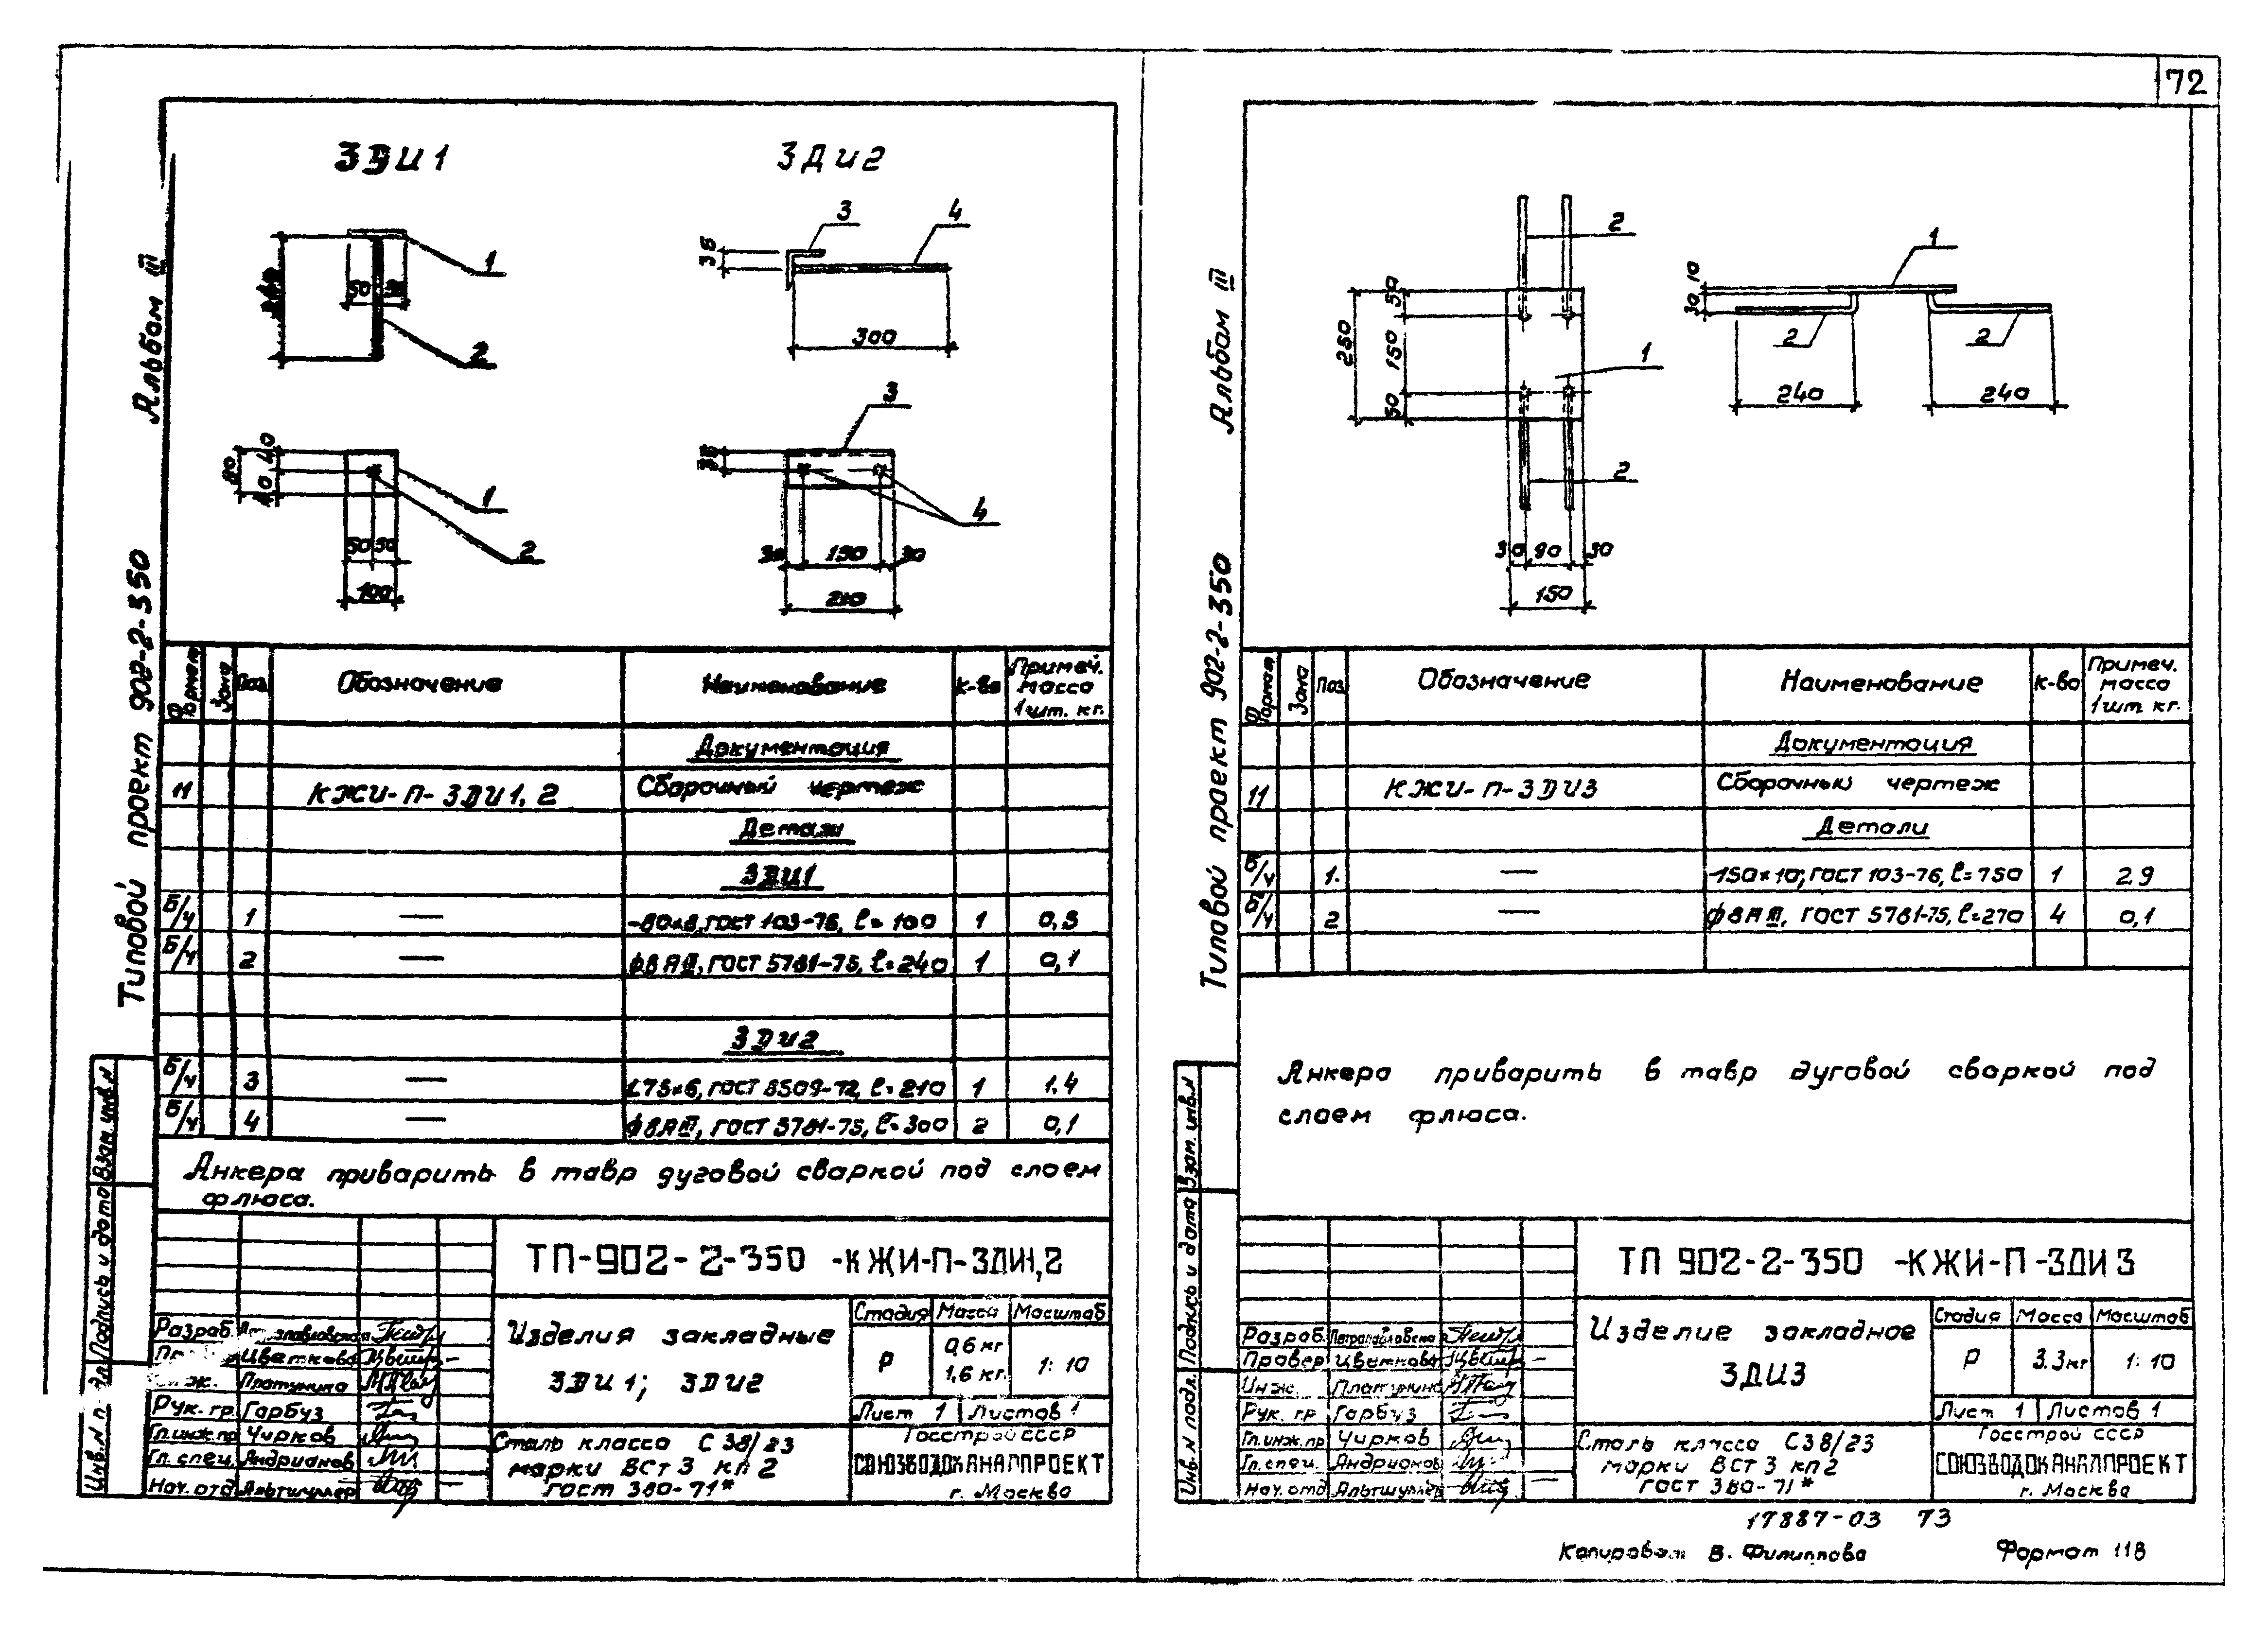 72
Альбом III
Типовой проект 902-2-350
ЗДИ1
ЗДИ2
1
50
2
40
40
80
1
2
50 50
100
3
4
35
300
3
35
4
30 150 30
210
Формат Зона Поз. Обозначение Наименование К-во Примеч. масса 1шт. кг.
Документация
11 КЖИ-П-ЗДИ1,2 Сборочный чертеж
Детали
ЗДИ1
Б/ч 1 — -80х8, ГОСТ 103-76, ℓ=100 1 0,5
Б/ч 2 — ф8АIII, ГОСТ 5781-75, ℓ=240 1 0,1
ЗДИ2
Б/ч 3 — L75х6, ГОСТ 8509-72, ℓ=210 1 1,4
Б/ч 4 — ф8АIII, ГОСТ 5781-75, ℓ=300 2 0,1
Анкера приварить в тавр дуговой сваркой под слоем
флюса.
ТП-902-2-350 -КЖИ-П-ЗДИ1,2
Изделия закладные
ЗДИ1; ЗДИ2
Стадия Масса Масштаб
Р 0,6 кг 1,6 кг. 1:10
Лист 1 Листов 1
Сталь класса С 38/23
марки ВСт 3 кп 2
гост 380-71*
Госстрой СССР
СОЮЗВОДОКАНАЛПРОЕКТ
г. Москва
Разраб.
Цветкова
Платунина
Рук. гр. Гарбуз
Гл.инж.пр Чирков
Гл. спец. Андрианов
Нач. отд Альтшуллер
Инв. N п дл Подпись и дата Взам. инв. N
Альбом III
Типовой проект 902-2-350
2
50
150
50
250
1
2
30 90 30
150
1
10
30
2
2
240
240
Формат Зона Поз Обозначение Наименование К-во Примеч. масса 1шт кг.
Документация
11 КЖИ-П-ЗДИ3 Сборочный чертеж
Детали
Б/ч 1. — -150х10, ГОСТ 103-76, ℓ=750 1 2.9
Б/ч 2 — ф8АIII, ГОСТ 5781-75, ℓ=270 4 0,1
Анкера приварить в тавр дуговой сваркой под
слоем флюса.
ТП 902-2-350 -КЖИ-П-ЗДИ3
Изделие закладное
ЗДИ3
Стадия Масса Масштаб
Р 3.3кг 1:10
Лист 1 Листов 1
Сталь класса С38/23
марки ВСт 3 кп2
ГОСТ 380-71*
Госстрой СССР
СОЮЗВОДОКАНАЛПРОЕКТ
г. Москва
Разраб. Петропавловская
Провер Цветкова
Инж. Платунина
Рук. гр Гарбуз
Гл.инж.пр Чирков
Гл.спец. Андрианов
Нач. отд Альтшуллер
Инв. N подл. Подпись и дата Взам. инв. N
17887-03 73
Копировал В. Филиппова Формат 11В